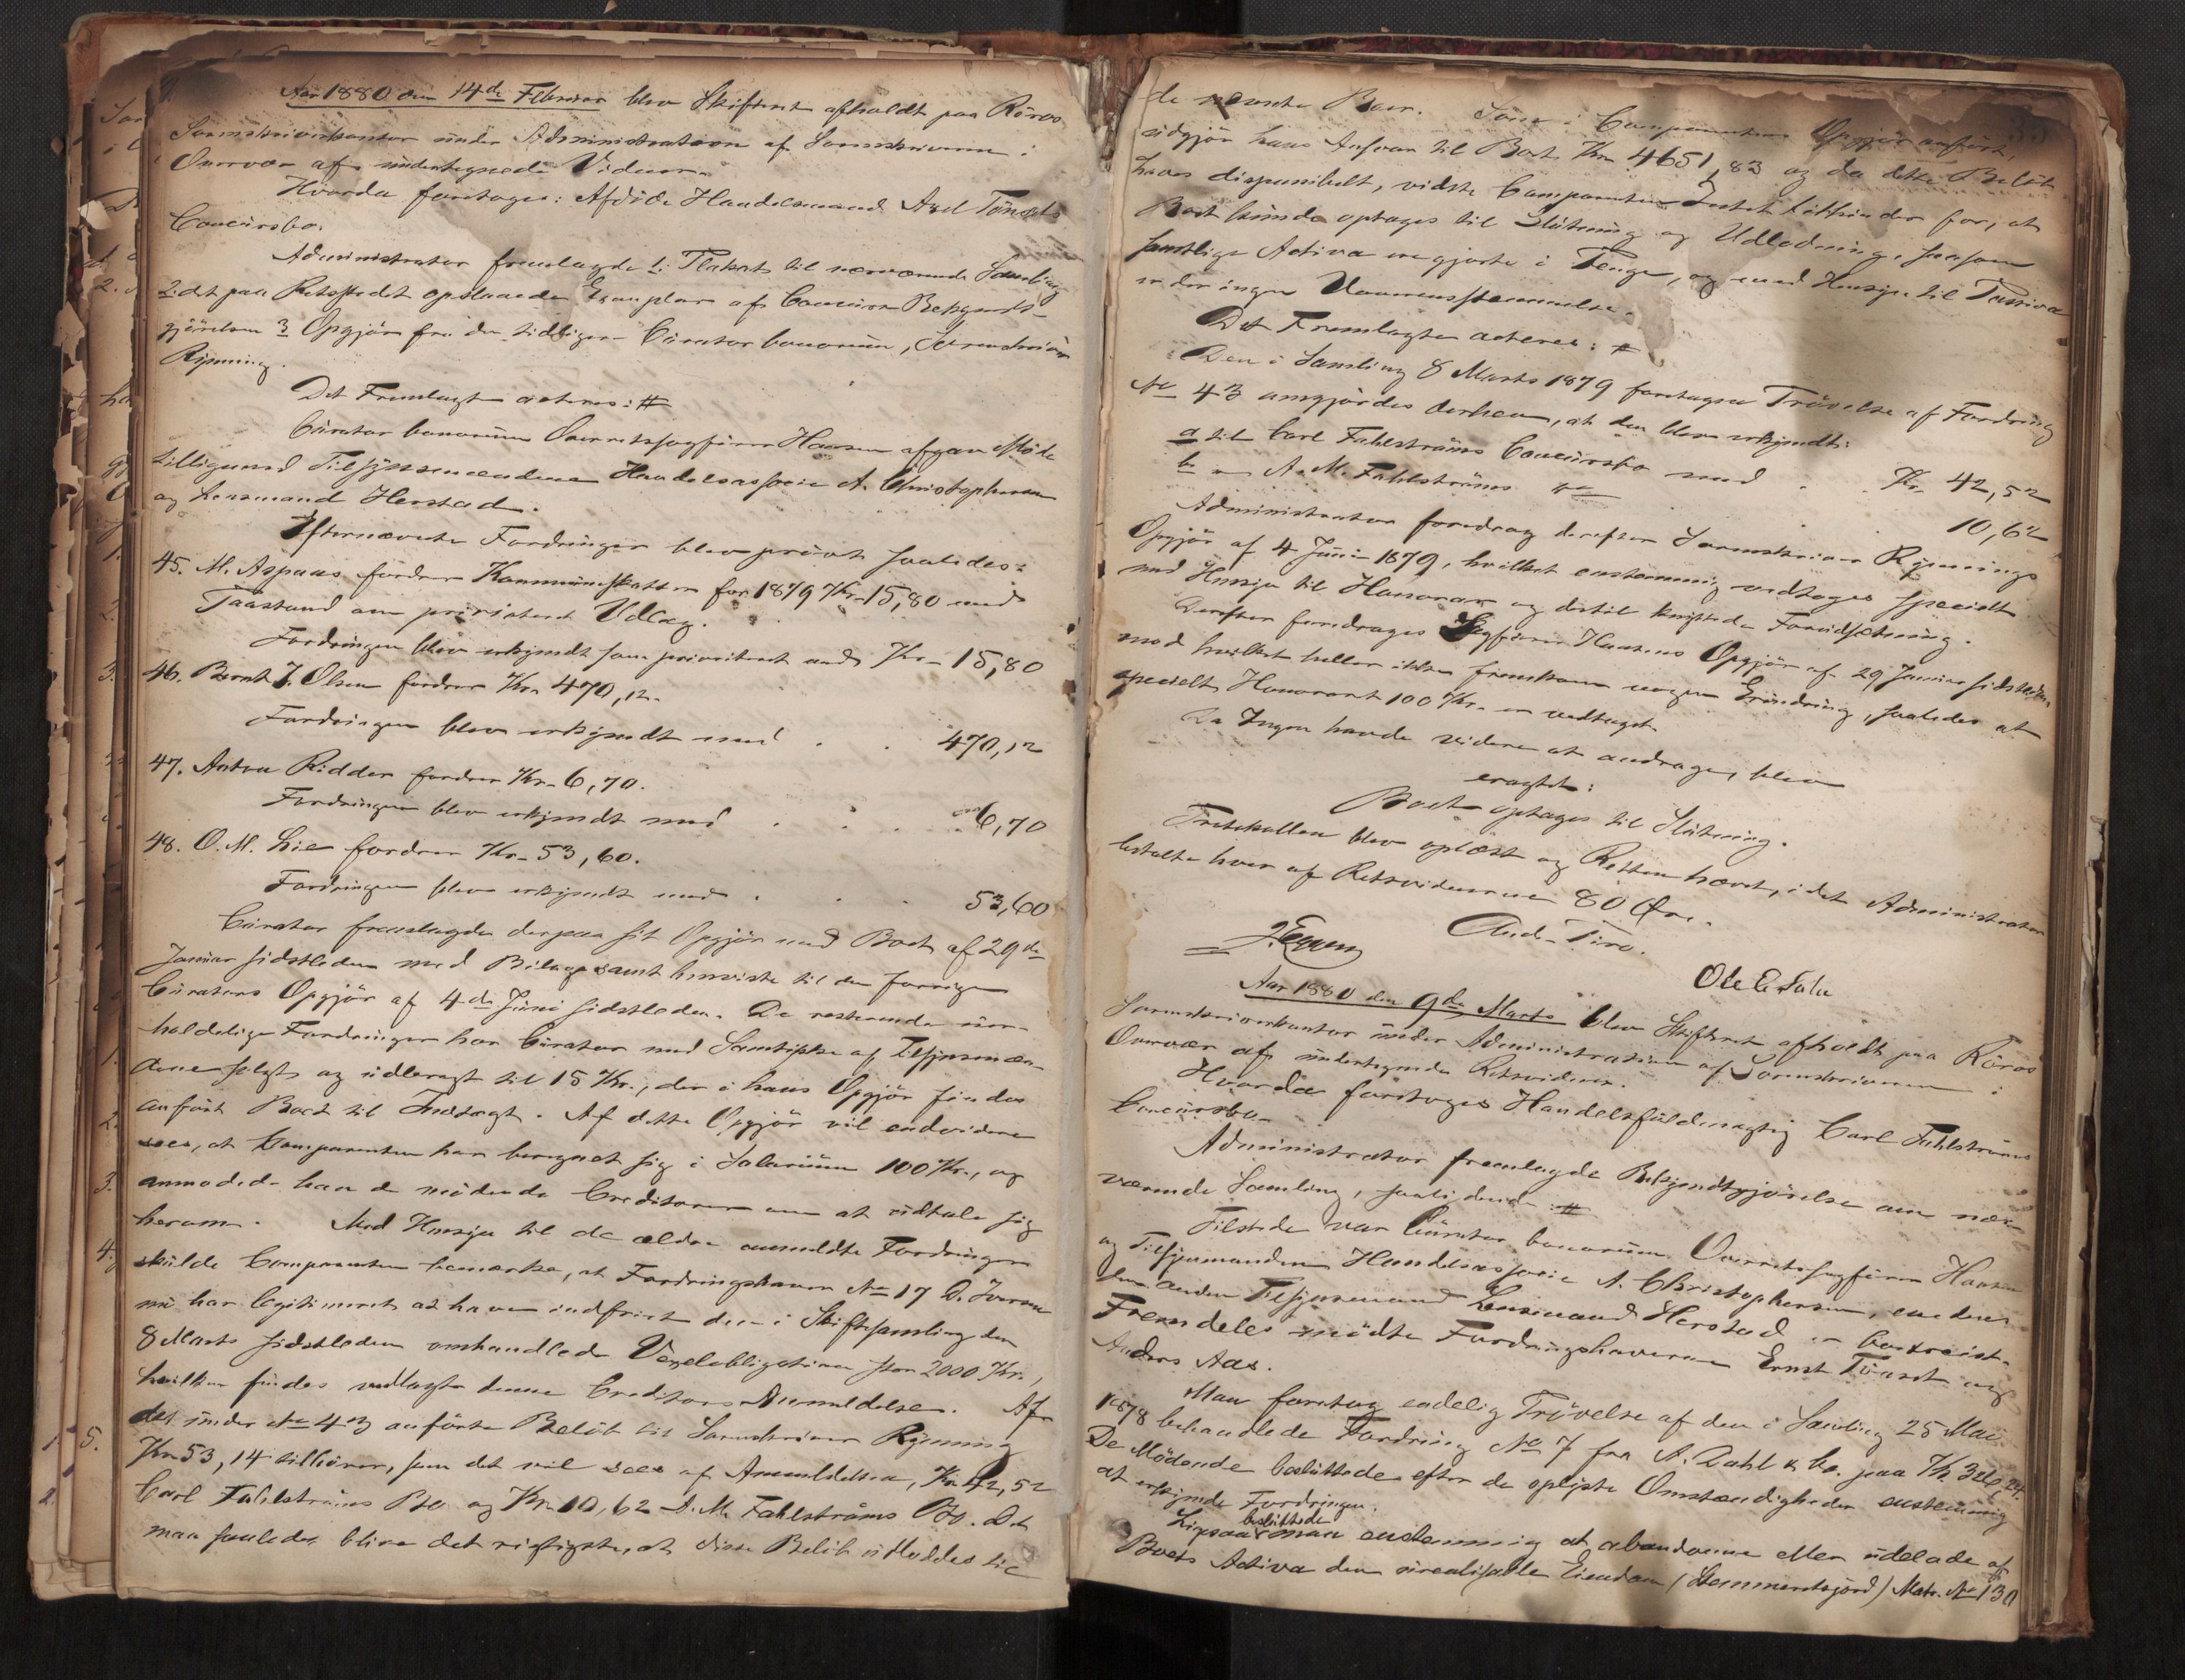 Aar 1880 den 14de Februar blev Skifteret afholdt paa Röros
Sorenskriverkontor under Administration af Sorenskriveren i
Overvær af undertegnede Vidner.
Hvorda foretoges: Afdöde Handelsmand Axel Tönsets
Concursbo.
Administrator fremlagde 1: Plakat til nærværende Samling
2: det paa Retsstedet opslaaede Exemplar af Concurs Bekjendt-
gjörelsen 3 Opgjör fra den tidligere Curator bonorum,
Rynning.
Det Fremlagte acteres: #
Curator bonorum Overretssagförer Hansen afgav Möde
tilligemed Tilsynsmændene Handelsassocie A. Christophersen
og Lensmand Herstad.
Efternævnte Fordringer blev prövet saaledes:
45. M. Aspaas fordrer Kommuneskatten for 1879 Kr. 15,80 med
Paastand om prioriteret Udlæg.
Fordringen blev erkjendt som prioriteret med Kr. 15,80
46. Bernt J. Olsen fordrer Kr. 470,12.
Fordringen blev erkjendt med . . 470,12
47. Anton Ridder fordrer Kr. 6,70.
Fordringen blev erkjendt med . . . 6,70
48. O. M. Lie fordrer Kr. 53,60.
Fordringen blev erkjendt med . . . 53,60
Curator fremlagde derpaa sit Opgjör med Boet af 29de
Januar sidstleden med Bilage samt henviste til den forrige
Curators Opgjör af 4de Juni sidstleden. De resterende uer-
holdelige Fordringer har Curator med Samtykke af Tilsynsmæn-
dene solgt og udbragt til 15 Kr., der i hans Opgjör findes
anfört Boet til Indtægt. Af dette Opgjör vil endvidere
sees, at Comparenten har beregnet sig i Salarium 100 Kr., og
anmodede han de mödende Creditorer om at udtale sig
herom. Med Hensyn til de ældre anmeldte Fordringer
skulde Comparenten bemærke, at Fordringshaver No 17 D. Iversen
nu har legitimeret at have indfriet den i Skiftesamling den
8 Marts sidstleden omhandlede Vexelobligation stor 2000 Kr.,
hvilken findes vedlagt denne Creditors Anmeldelse. Af
det under No 43 anförte Belöb til Sorenskriver Rynning
Kr. 53,14 tilhörer, som det vil sees af Anmeldelsen, Kr. 42,52
Carl Fahlströms Bo og Kr. 10,62 A. M. Fahlströms Bo. Det
maa saaledes blive det rigtigste, at disse Belöb udloddes til
de nævnte Boer. Som i Comparentens Opgjör anfört,
udgjör hans Ansvar til Boet Kr. 4651,83 og da dette Belöb
haves disponibelt, vidste Comparenten Intet til Hinder for, at
Boet kunde optages til Slutning og Udlodning, saasom
samtlige Activa ere gjorte i Penge, og med Hensyn til Passiva
er der ingen Uoverensstemmelse.
Det Fremlagte acteres: #
Den i Samling 8 Marts 1879 foretagne Prövelse af Fordring
No 43 omgjördes derhen, at den blev erkjendt:
a til Carl Fahlströms Concursbo med . Kr. 42,52
b — A. M. Fahlströms do . . 10,62
Administrator foredrog derefter Sorenskriver Rynnings
Opgjör af 4 Juni 1879, hvilket enstemmig vedtoges specielt
med Hensyn til Honorar og dertil knyttede Forudsætning.
Derefter foredroges Sagförer Hansens Opgjör af 29 Januar sidstleden,
mod hvilket heller ikke fremkom nogen Erindring, saaledes at
specielt Honoraret 100 Kr. er vedtaget.
Da Ingen havde videre at andrage, blev
eragtet:
Boet optages til Slutning.
Protokollen blev oplæst og Retten hævet, idet Administrator
betalte hver af Retsvidnerne 80 Öre.
Ole E Sala
Aar 1880 den 9de Marts blev Skifteret afholdt paa Röros
Sorenskriverkontor under Administration af Sorenskriveren i
Overvær af undertegnede Retsvidner.
Hvorda foretoges Handelsfuldmægtig Carl Fahlströms
Concursbo.
Administrator fremlagde Bekjendtgjörelse om nær-
værende Samling, saalydende: #
Tilstede var Curator bonorum Overretssagförer Hansen
og Tilsynsmanden Handelsassocie A. Christophersen, medens
den anden Tilsynsmand Lensmand Herstad er bortreist.
Fremdeles mödte Fordringshaverne Ernst Tönset og
Anders Aas.
Man foretog endelig Prövelse af den i Samling 25 Mai
1878 behandlede Fordring No 7 fra A. Dahl & Co. paa Kr.
De Mödende besluttede efter de oplyste Omstændigheder enstemmig
at erkjende Fordringen.
Ligesaa besluttede man enstemmig at abandonere eller udelade af
Boets Activa den urealisable Eiendom (Stemmeretsjord) Matr. No 130